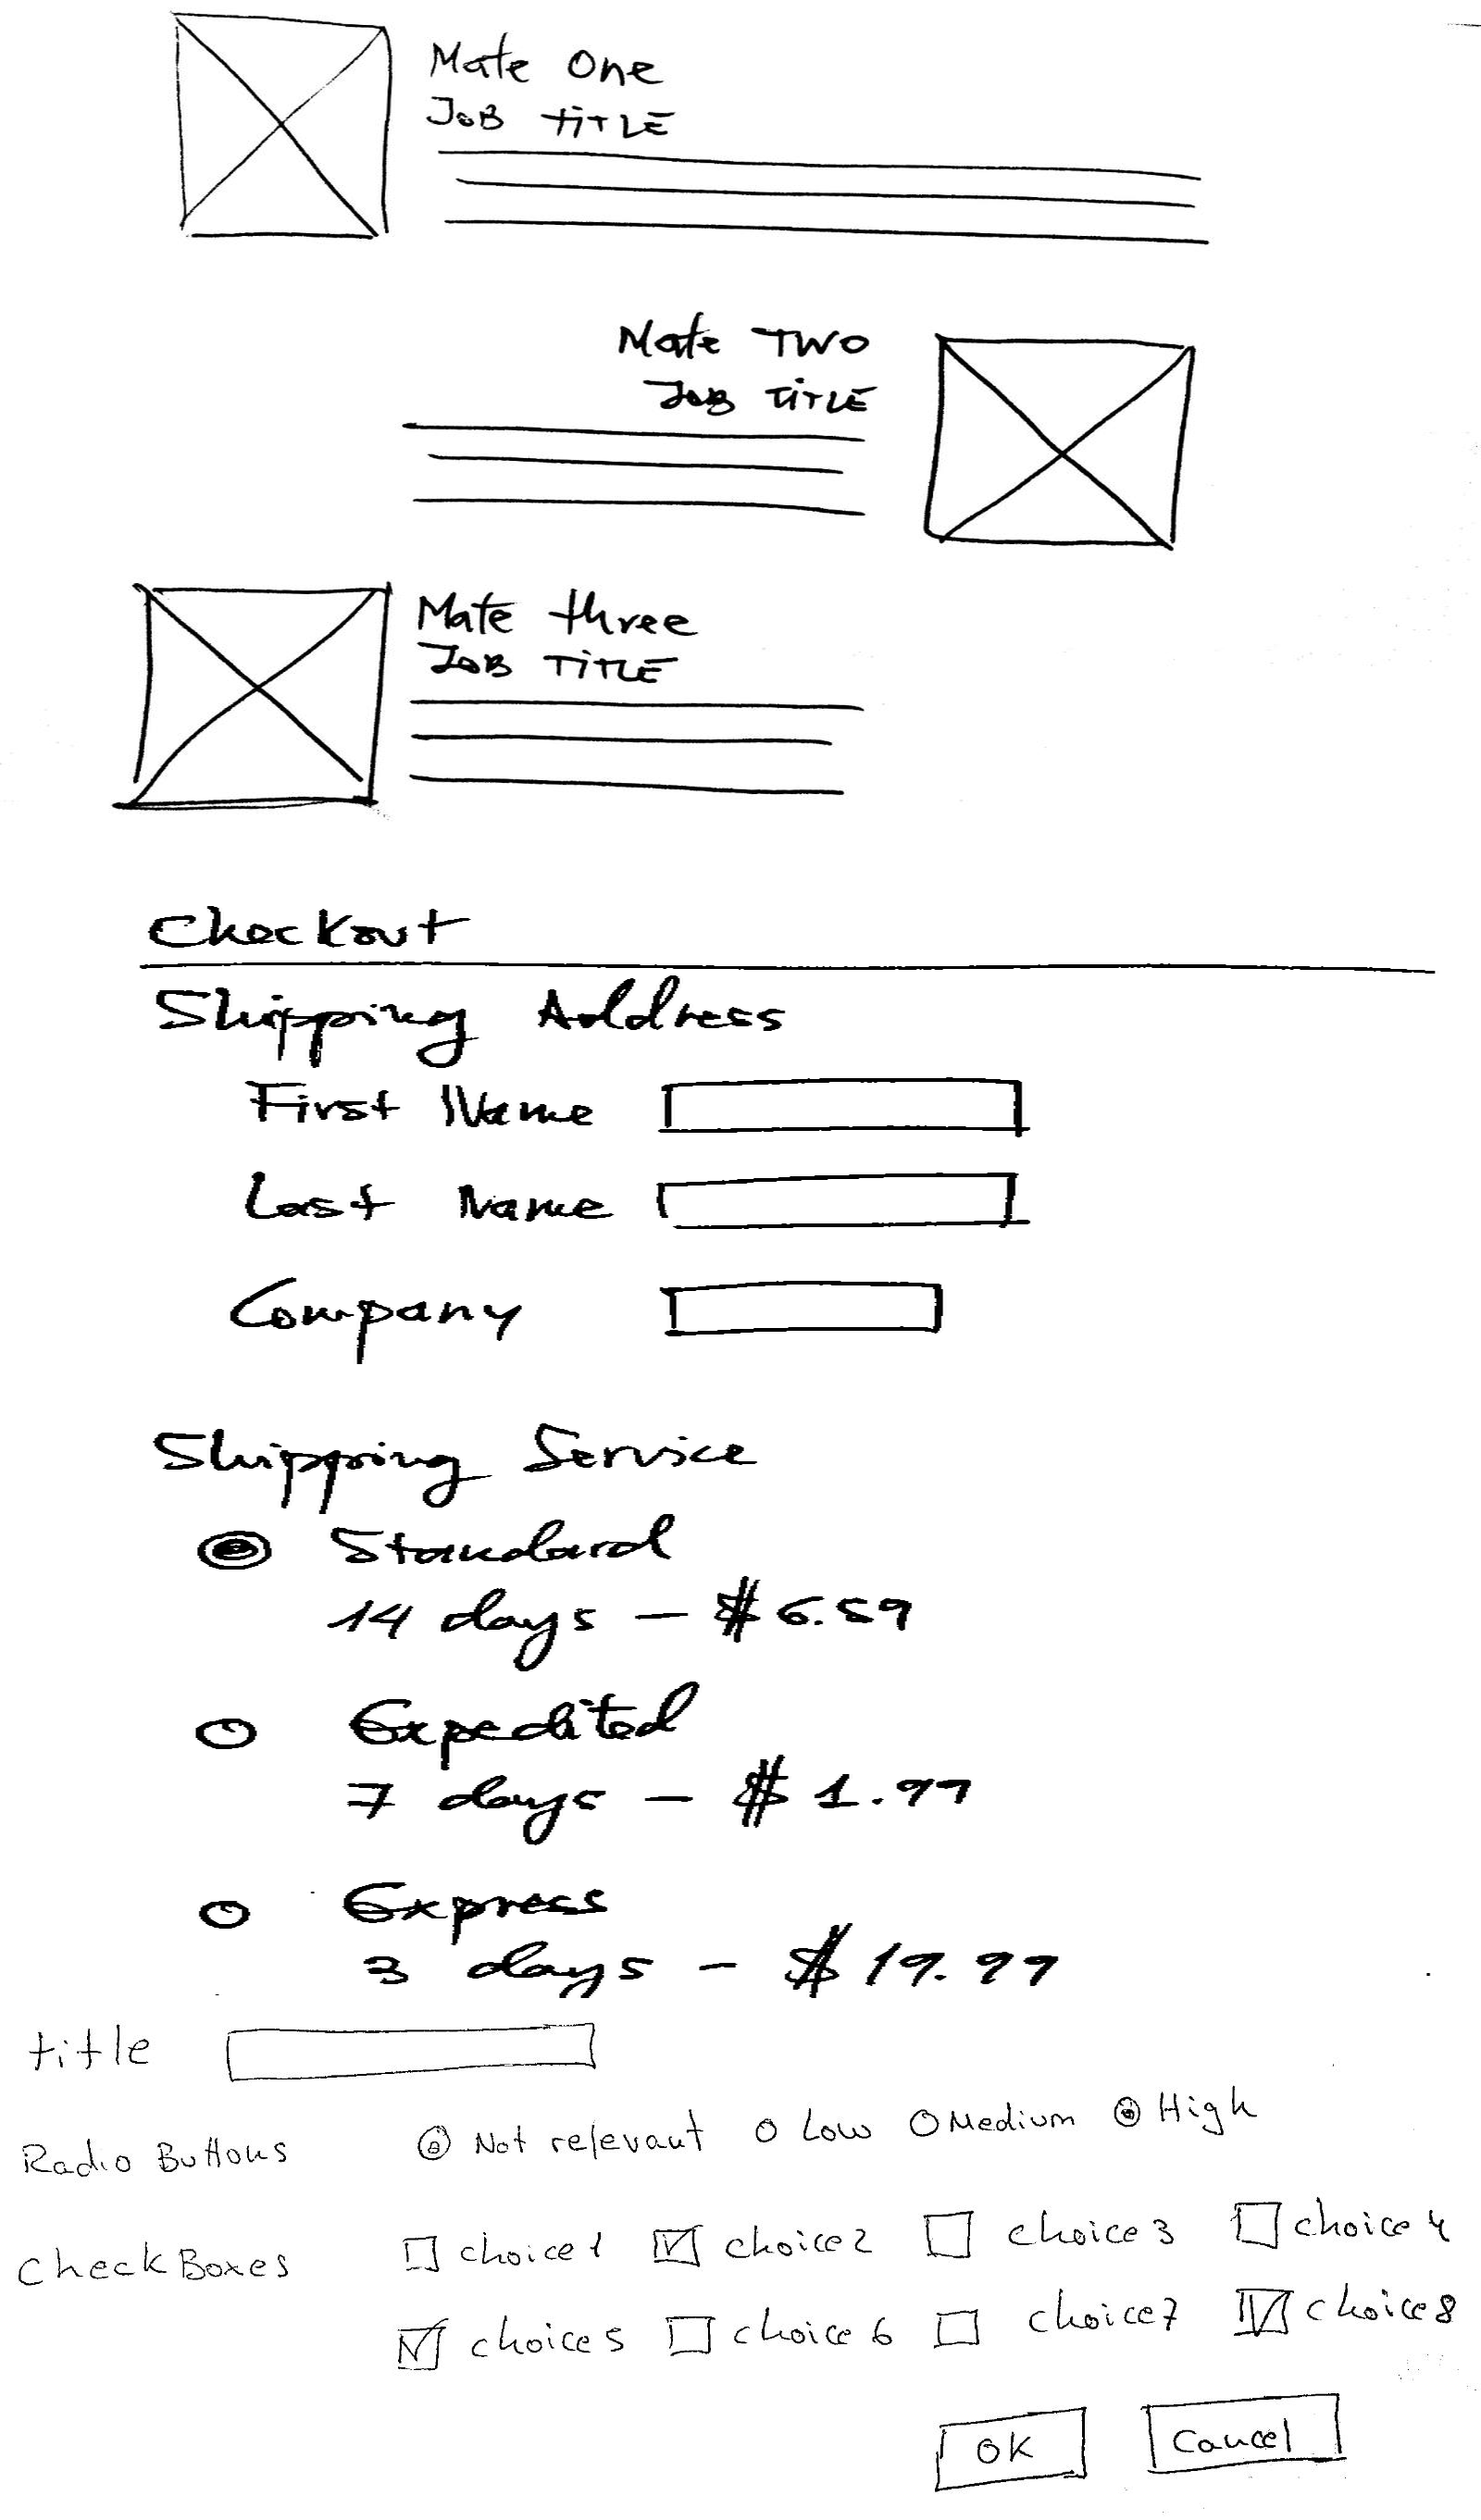 Mate One
JOB TITLE
Mate TWO
JOB TITLE
Mate three
JOB TITLE
Checkout
Shipping Address
First Name
Last Name
Company
Shipping Service
Standard
14 days - $6.59
Expedited
7 days - $1.99
Express
3 days - $19.99
title
Radio Buttons Not relevant Low Medium High
CheckBoxes choice1 choice2 choice3 choice4
choice5 choice6 choice7 choice8
OK Cancel